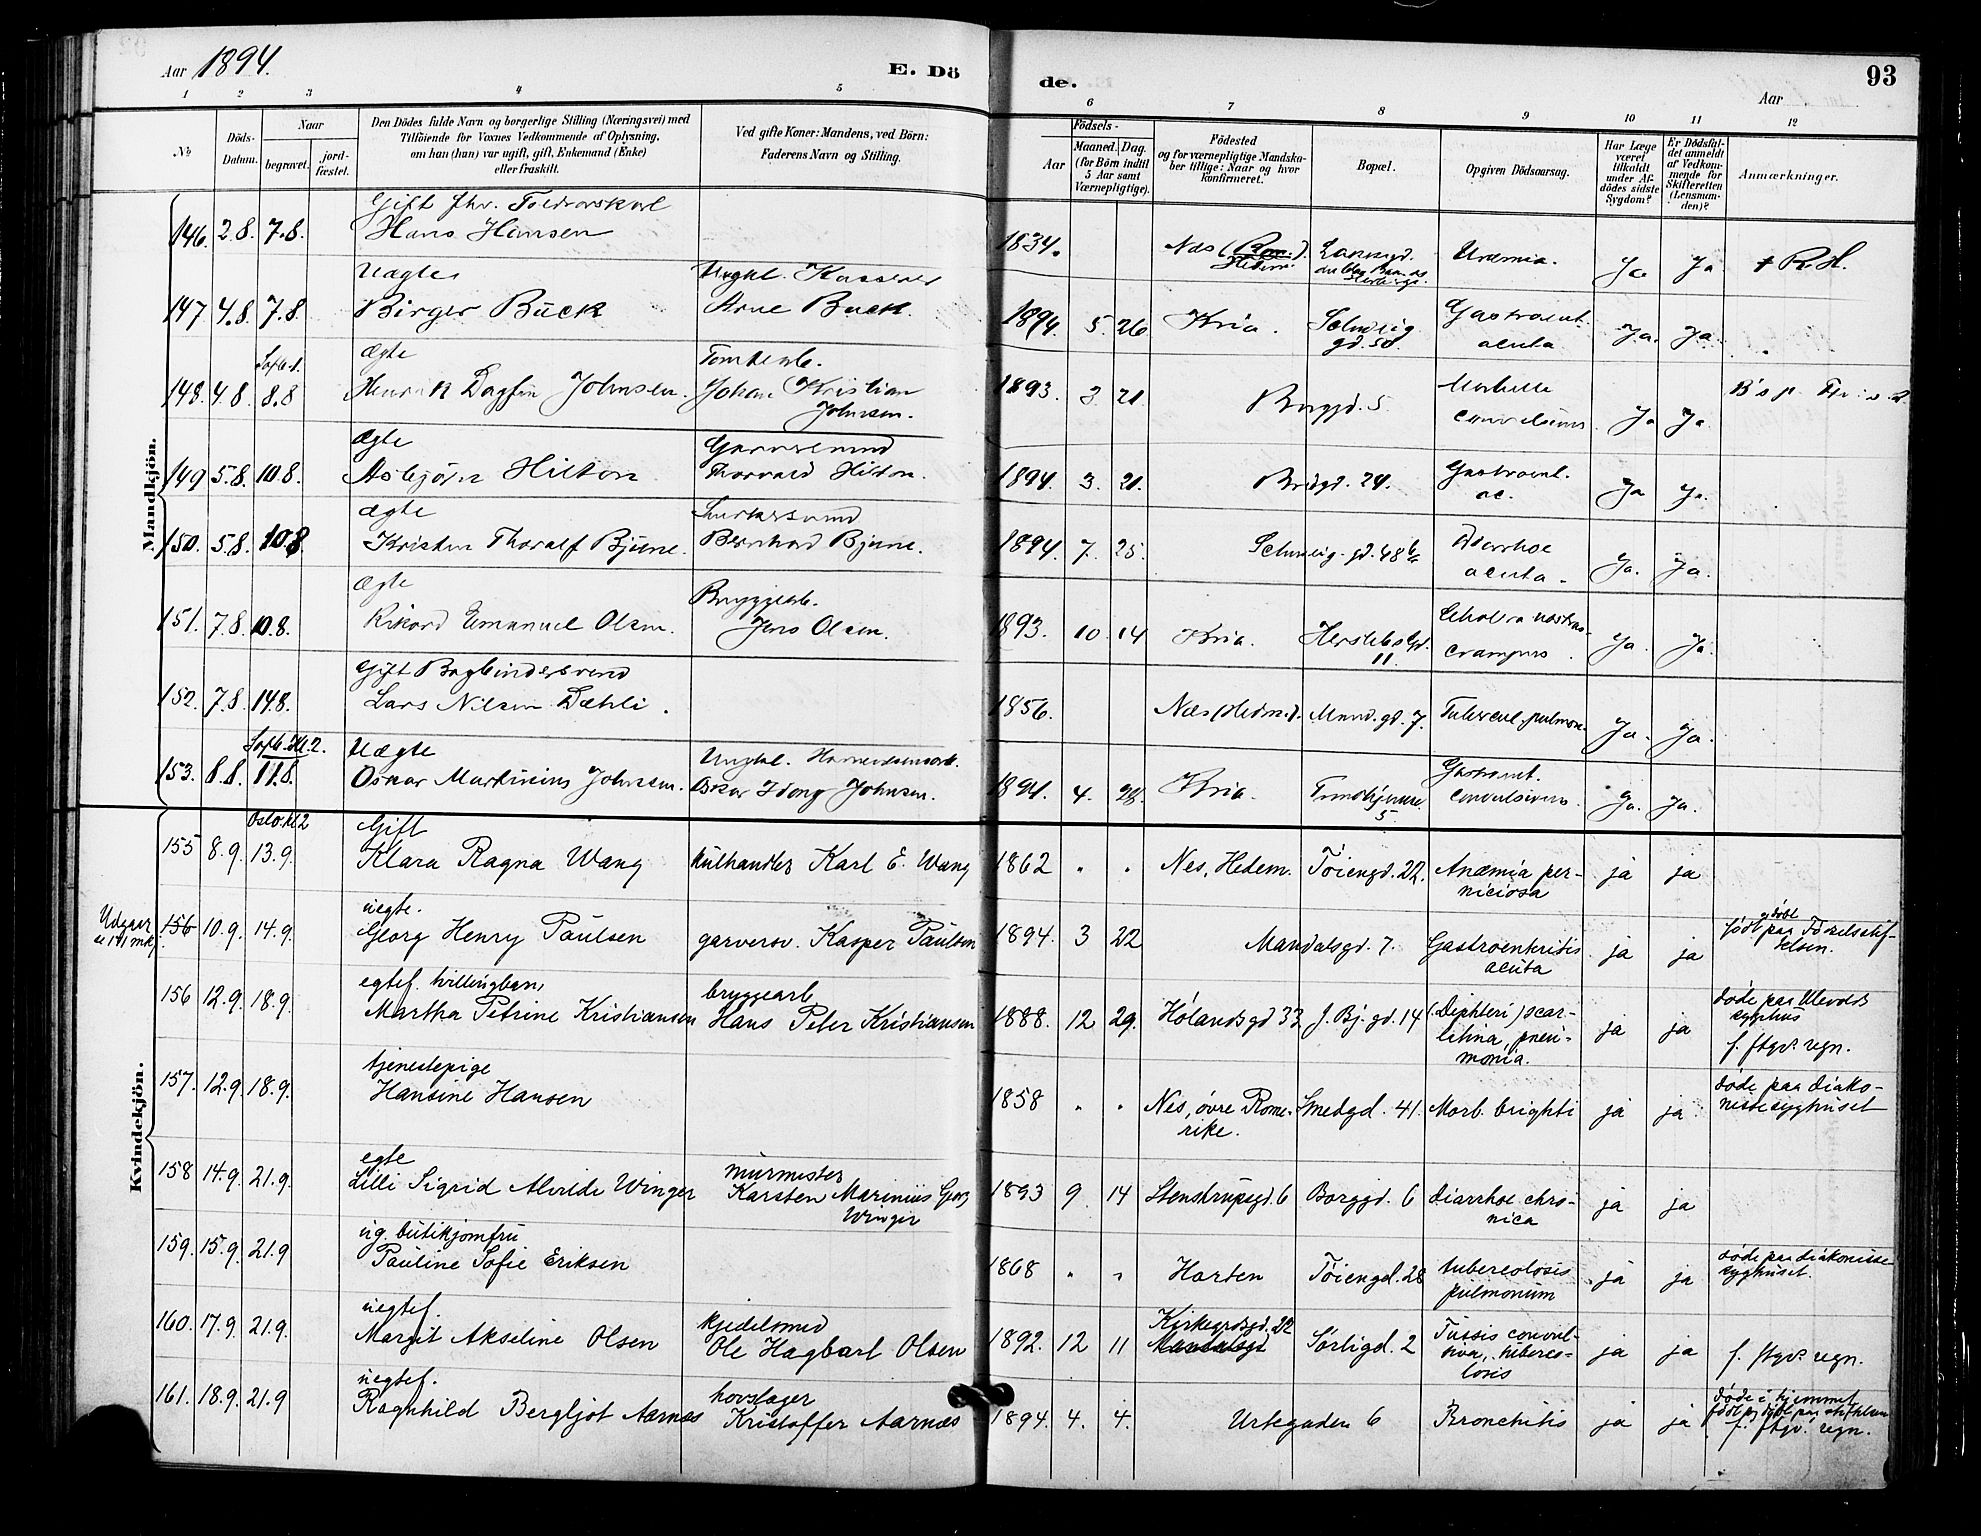 Aar 1894.
E. Dö
de.
93
Aar
1 2 3 4 5 6 7 8 9 10 11 12
No
Döds-Datum.
Naar
begravet.
jord-fæstet.
Den Dödes fulde Navn og borgerlige Stilling (Næringsvei) med
Tilföiende for Voxnes Vedkommende af Oplysning,
om han (hun) var ugift, gift, Enkemand (Enke)
eller fraskilt.
Ved gifte Koner: Mandens, ved Börn:
Faderens Navn og Stilling.
Födsels-
Aar
Maaned. Dag.
(for Börn indtil
5 Aar samt
Værnepligtige).
Födested
og for værnepligtige Mandska-
ber tillige: Naar og hvor
konfirmeret.
Bopæl.
Opgiven Dödsaarsag.
Har Læge
været
tilkaldt
under Af-
dödes sidste
Sygdom?
Er Dödsfal-
det anmeldt
af Vedkom-
mende for
Skifteretten
(Lensman-
den)?
Anmærkninger.
Mandkjön.
Gift fhv.
146. 2.8. 7.8. Hans Hansen 1834. Næs Uræmia. Ja Ja † R.H.
Uægte Ungkl. Kasserer
147 4.8. 7.8. Birger Buck Arne Buck. 1894. 5 26 Kria. Schweig gd. 50. Gastroent. acuta Ja. Ja.
Ægte Tomtearb.
148. 4.8. 8.8 Henrik Dagfin Johnsen. Johan Kristian Johnsen. 1893. 3. 21. Borggd. 5. Ja Ja.
Ægte
149 5.8. 10.8. Asbjörn Hilton Thorvald Hilton. 1894. 3. 21. gd. 24. Gastroent. ac. Ja Ja.
Ægte
150. 5.8. 10.8. Kristen Thoralf Bjune. Bernhard Bjune. 1894. 7. 25. Schweig. gd. 48 b Diarrhoe acuta. Ja. Ja.
Ægte Bryggearb.
151. 7.8. 10.8. Rikard Emanuel Olsen. Jens Olsen. 1893. 10 14 Kria. Herslebs Gd. 11. Cholera nostras Ja. Ja.
Gift Bogbindersvend
152. 7.8. 14.8. Lars Nilsen Dæhli. 1856. Næs (Hedm.). gd. 7. Tubercul. pulmon. Ja. Ja.
Uægte Ungkl.
153. 8.8. 11.8. Oskar Martinius Johnsen. Oskar Johnsen. 1894. 4. 28. Kria. 5. Gastroent. convulsiones. Ja. Ja.
Kvindekjön.
Oslo. kl 2 Gift
155 8.9. 13.9. Klara Ragna Wang kulhandler Karl E. Wang 1862 " " Nes, Hedem. Töiengd. 22. Anæmia per-
niciosa ja ja
uegte.
156 10.9. 14.9. Georg Henry Paulsen garversv. Kasper Paulsen 1894. 3 22 Mandalsgd. 7. Gastroenteritis
acuta ja ja født g døbt paa Fødselsstif-
telsen.
egtef. tvillingbarn, bryggearb.
156 12.9. 18.9. Martha Petrine Kristiansen Hans Peter Kristiansen 1888. 12 29. Hölandsgd 33 J. Bj. gd. 14 (Diphteri) scar-
latina, pneu-
monia. ja ja døde paa Ulevolds
syghus
f. ftgv. regn.
tjenestepige
157. 12.9. 18.9. Hansine Hansen 1858 " " Nes, övre Rome-
rike. Smedgd. 41. Morb. brighti ja ja døde paa diako-
nissesyghuset
egte murmester
158 14.9. 21.9. Lilli Sigrid Alvilde Winger Karsten Marenius Georg
Winger 1893 9 14 Stenstrupsgd. 6 Borggd. 6 diarrhoe chro-
nica ja ja
ug. butikjomfru
159. 15.9. 21.9 Pauline Sofie Eriksen 1868 " " Horten Töiengd. 28 tuberculosis
pulmonum ja ja døde paa diakonisse
syghuset.
uegtef. kjedelsmed
160. 17.9. 21.9. Margit Akseline Olsen Ole Hagbart Olsen 1892. 12 11 Kirkegrdsgd. 22
Mandalsgd Sörligd. 2 Tussis convul-
siva, tubercu-
losis ja ja f. ftgv. regn.
uegtef. hovslager
161. 18.9. 21.9 Ragnhild Bergljot Aarnæs Kristoffer Aarnæs 1894. 4. 4. Urtegaden 6 Bronchitis ja ja døde i hjemmet
født og døbt paa stiftelsen
f. ftgv. regn.